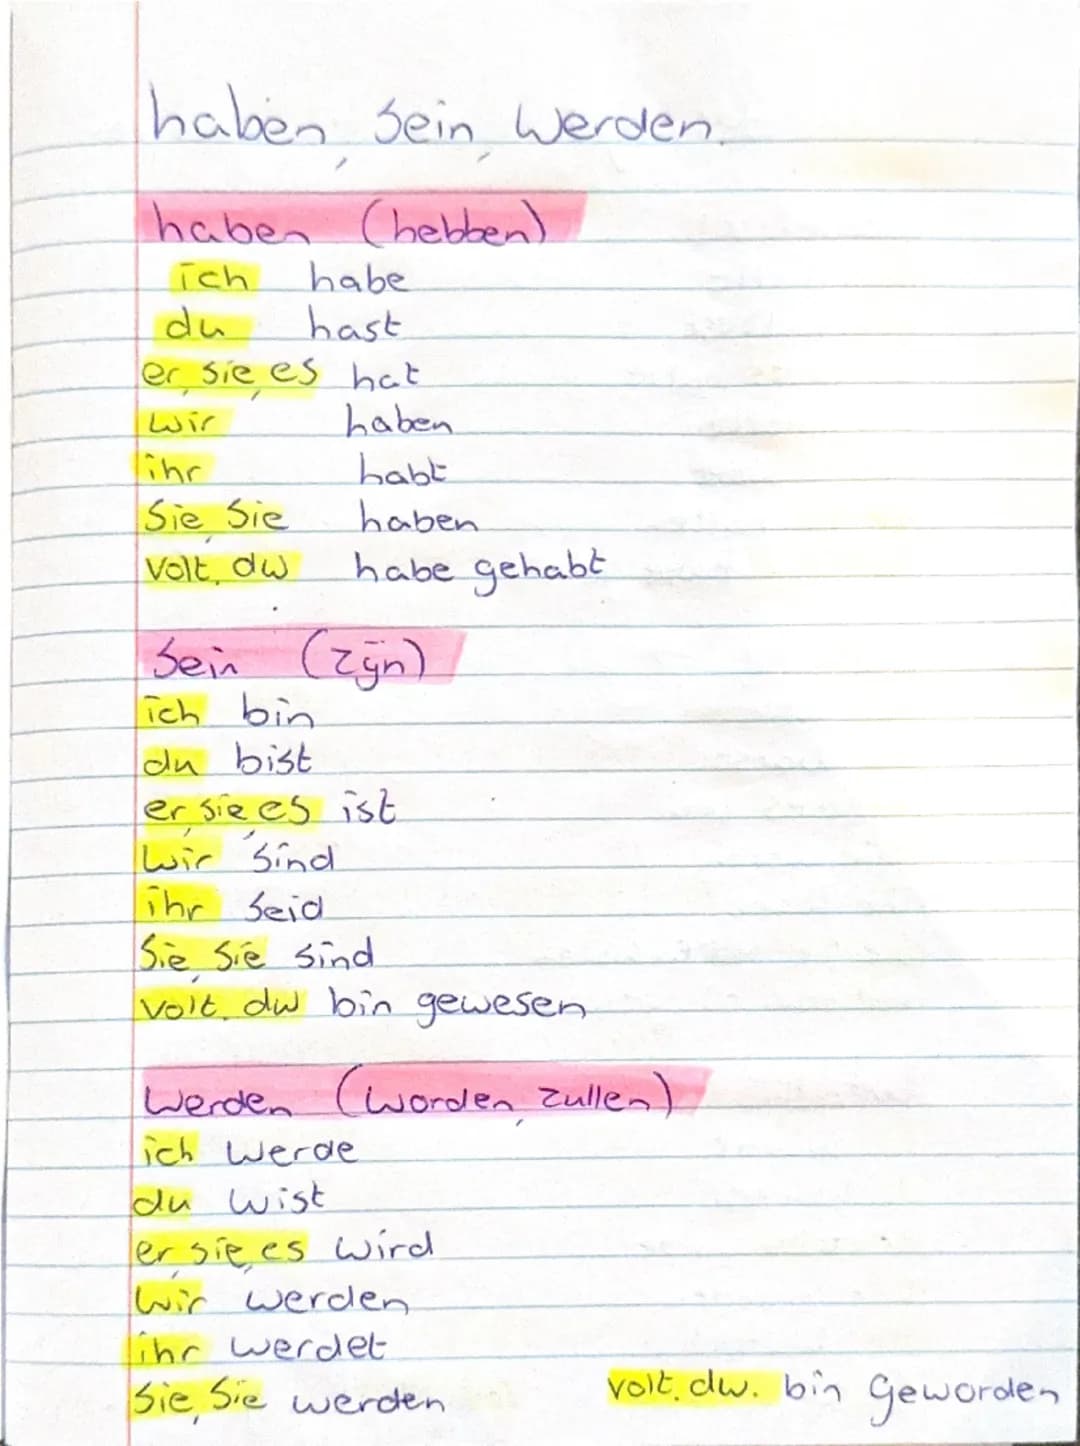 haben, sein, werden.
haben (hebben)
ich habe
du hast
er, sie, es hat
wir haben
ihr habt
Sie, Sie haben
volt. dw habe gehabt
Sein (zijn)
ich bin
du bist
er, sie, es ist
wir sind
ihr seid
Sie, Sie sind
volt. dw bin gewesen
Werden (worden, zullen)
ich werde
du wist
er, sie, es wird
wir werden
ihr werdet
Sie, Sie werden volt. dw. bin geworden